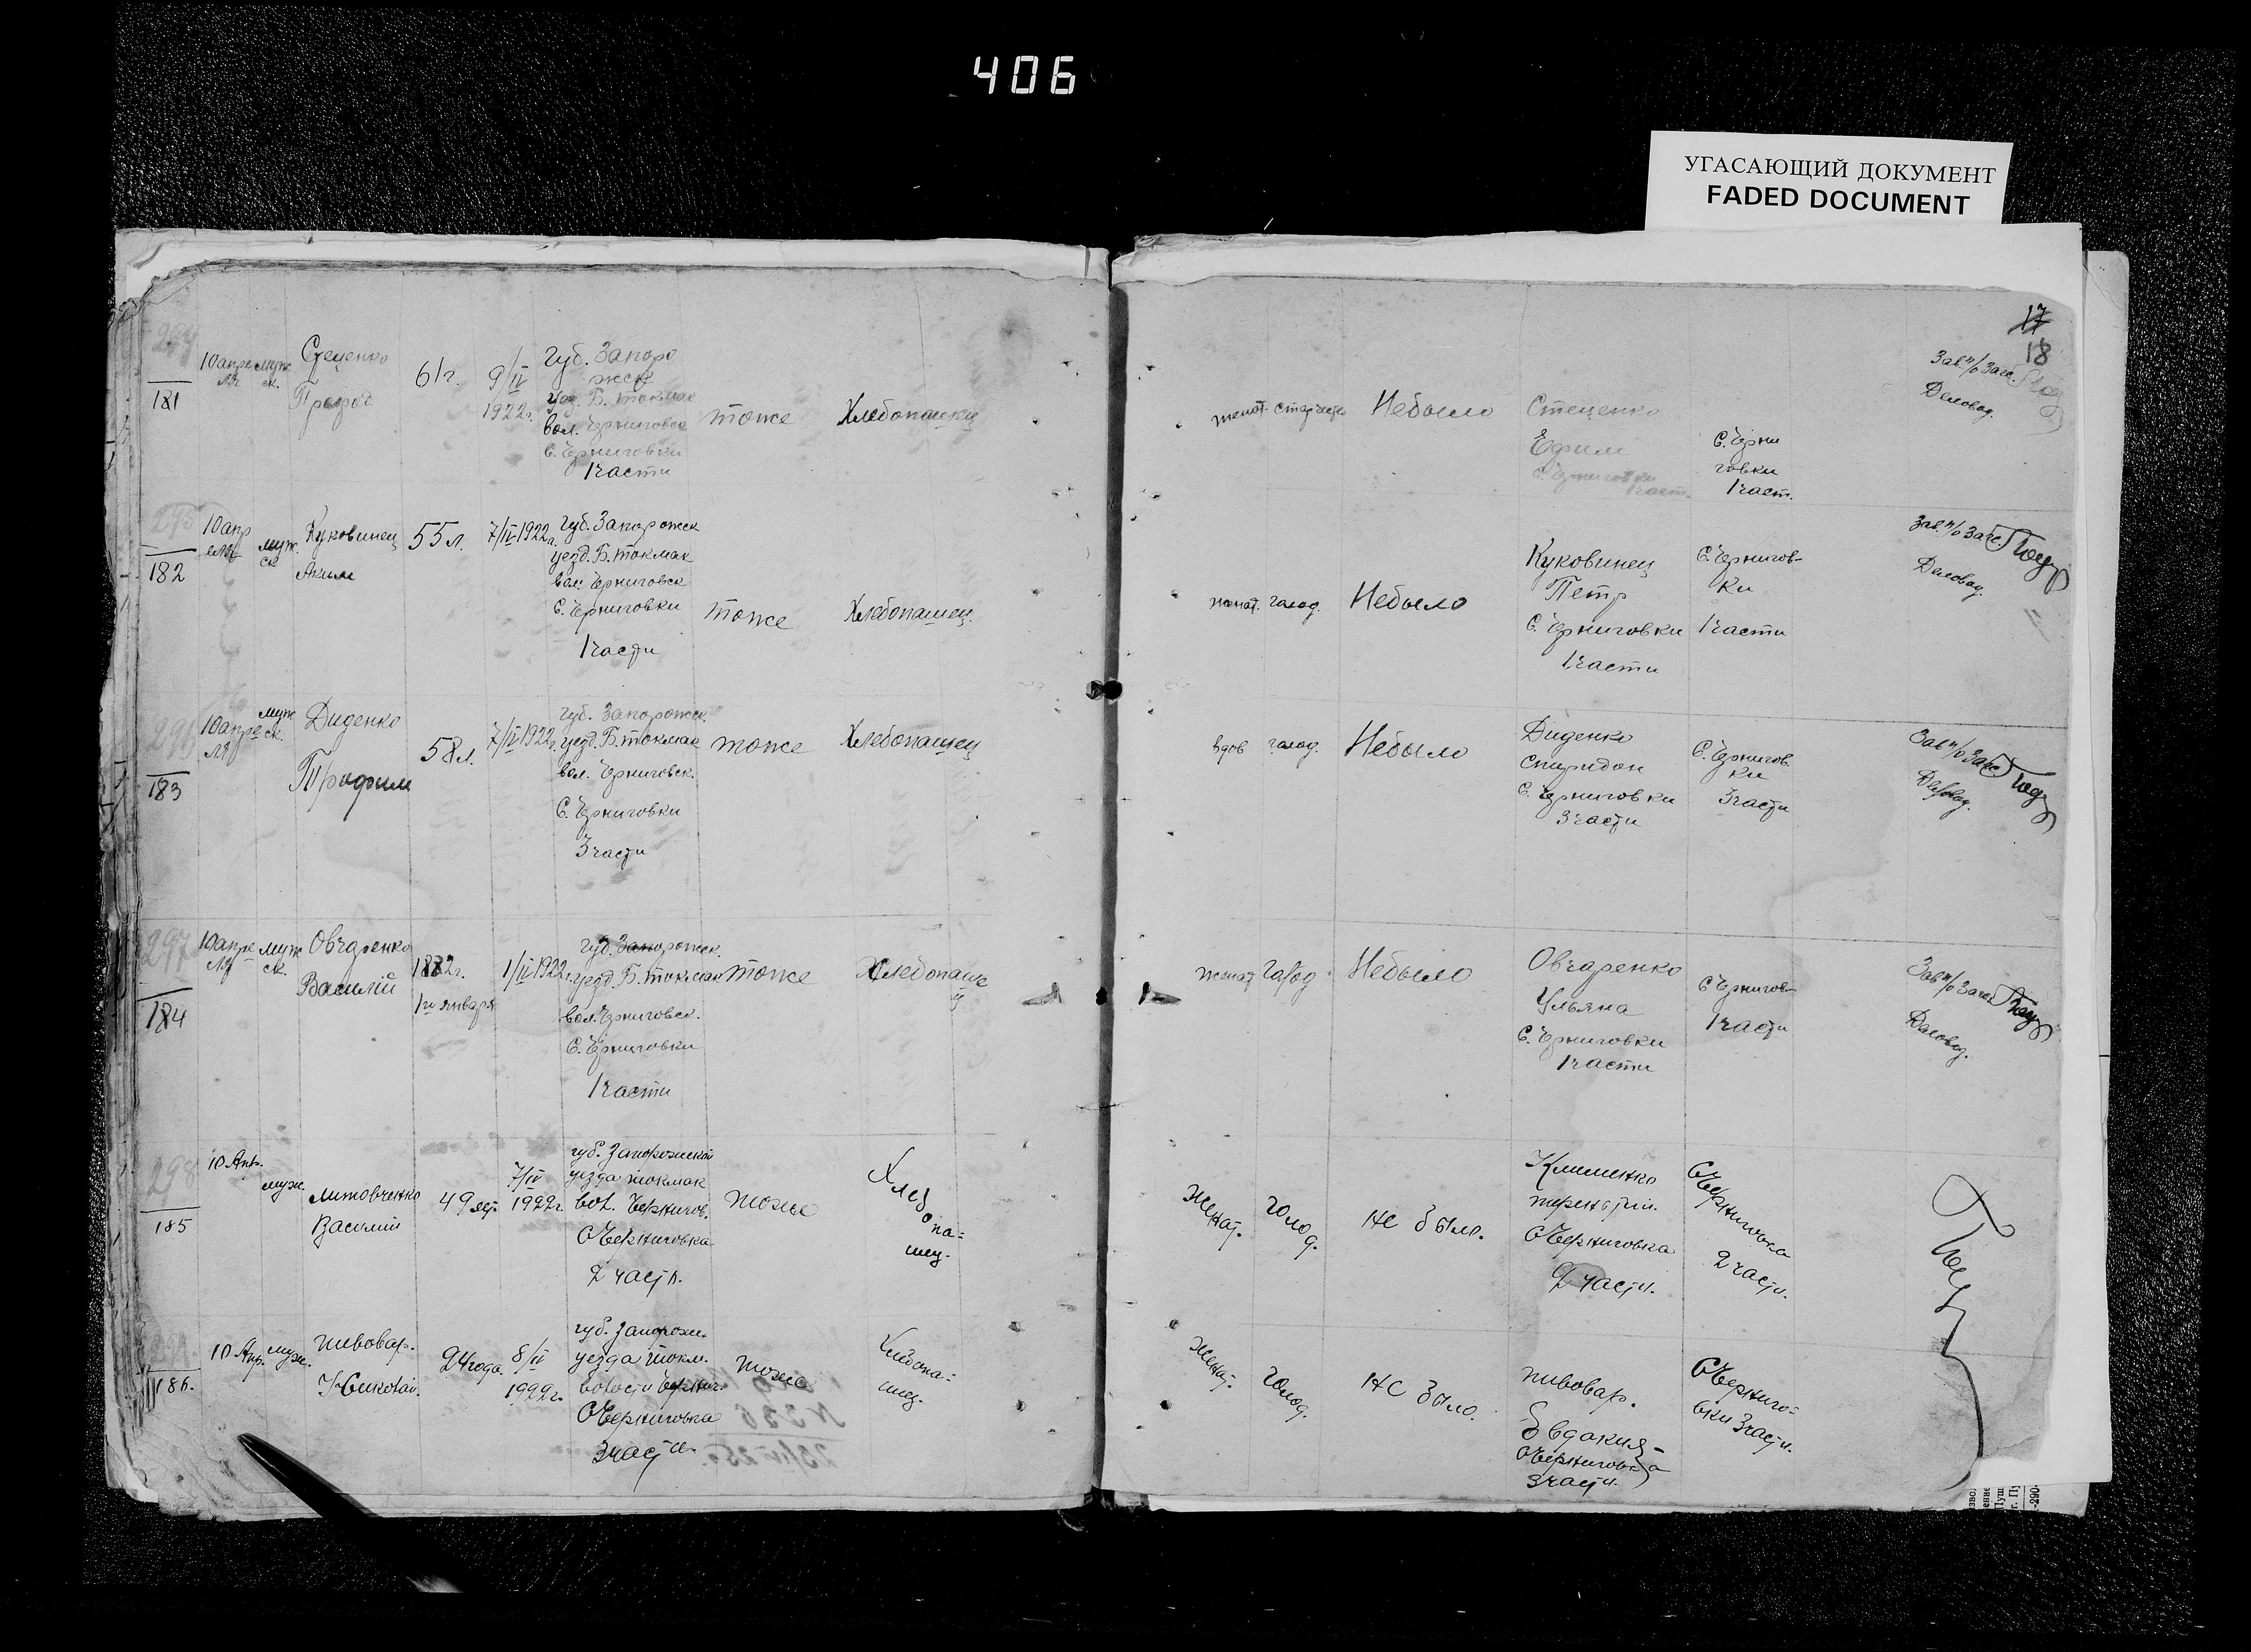 406
УГАСАЮЩИЙ ДОКУМЕНТ
FADED DOCUMENT
17
18
181
10 апре
ля
муж
ск.
Стеценко
61 г.
9/IV
1922 г.
Губ. Запоро
жск
уез. Б. Токмак
вол. Черниговск
С. Черниговки
1 части
тоже
Хлебопашец
женат.
Небыло
Стеценко
Ефим
С. Черниговки
1 част.
С. Черни
говки
1 част.
Зав. п/о Загс.
Деловод.
295
182
10 апр
еля
муж.
ск
Куковинец
Аким
55 л.
7/IV 1922 г.
Губ. Запорожск
уезд. Б. Токмак
вол. Черниговск
С. Черниговки
1 части
тоже
Хлебопашец.
женат.
голод.
Небыло
Куковинец
Петр
С. Черниговки
1 части
С. Чернигов-
ки
1 части
Зав. п/о Загс.
Деловод.
296
183
10 апре
ля
муж
ск.
Диденко
Трофим
58 л.
7/IV 1922 г.
Губ. Запорожск.
уезд. Б. Токмак
вол. Черниговск.
С. Черниговки
3 части
тоже
Хлебопашец
вдов
голод.
Небыло
Диденко
Спиридон
С. Черниговки
3 части
С. Чернигов
ки
3 части
Зав. п/о Загс
Деловод.
297
184
10 апре
ля
муж
ск.
Овчаренко
Василій
1882 г.
1го января
1/IV 1922 г.
Губ. Запорожск.
уезд. Б. Токмак
вол. Черниговск.
С. Черниговки
1 части
тоже
Хлебопаше
ц
женат
голод
Небыло
Овчаренко
Ульяна
С. Черниговки
1 части
С Чернигов-
1 части
Зав. п/о Загс
Деловод.
298
185
10 Апр.
муж.
Литовченко
Василий
49 лет.
7/IV
1922 г.
губ. Запорожской
уезда токмак
вол. Чернигов.
С Черниговка
2 части.
тоже
Хлебопа=
шец.
Женат.
голод.
не было.
Клименко
С Черниговка
2 части.
С Черниговка
2 части.
186.
10 Апр.
муж.
Пивовар.
Николай.
24 года.
8/IV
1922 г.
губ. Запорож.
уезда Токм.
волости Черниг.
С Черниговка
3 части.
тоже
Хлебопа=
шец.
Женат.
голод.
не было.
Пивовар.
Евдокия-
С Черниговка
3 части.
С Черниго=
вки 3 части.